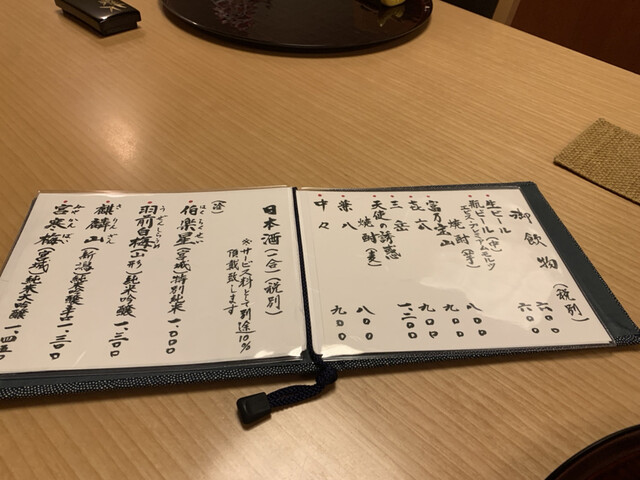 御飲物（税別）
生ビール（中） 六〇〇
瓶ビール 六〇〇
エビス・プレミアムモルツ
焼酎（芋）
富乃宝山 八〇〇
吉八 九〇〇
三岳 九〇〇
天使の誘惑 一、二〇〇
焼酎（麦）
兼八 八〇〇
中々 九〇〇
日本酒（一合）（税別）
※サービス料として別途10％
頂戴致します
（冷）
はくらくせい
伯楽星（宮城）特別純米 一、〇〇〇
うぜんしらうめ
羽前白梅（山形）純米吟醸 一、二〇〇
きりんざん
麒麟山（新潟）純米吟醸 一、三〇〇
みやかんばい
宮寒梅（宮城）純米大吟醸 一、四五〇